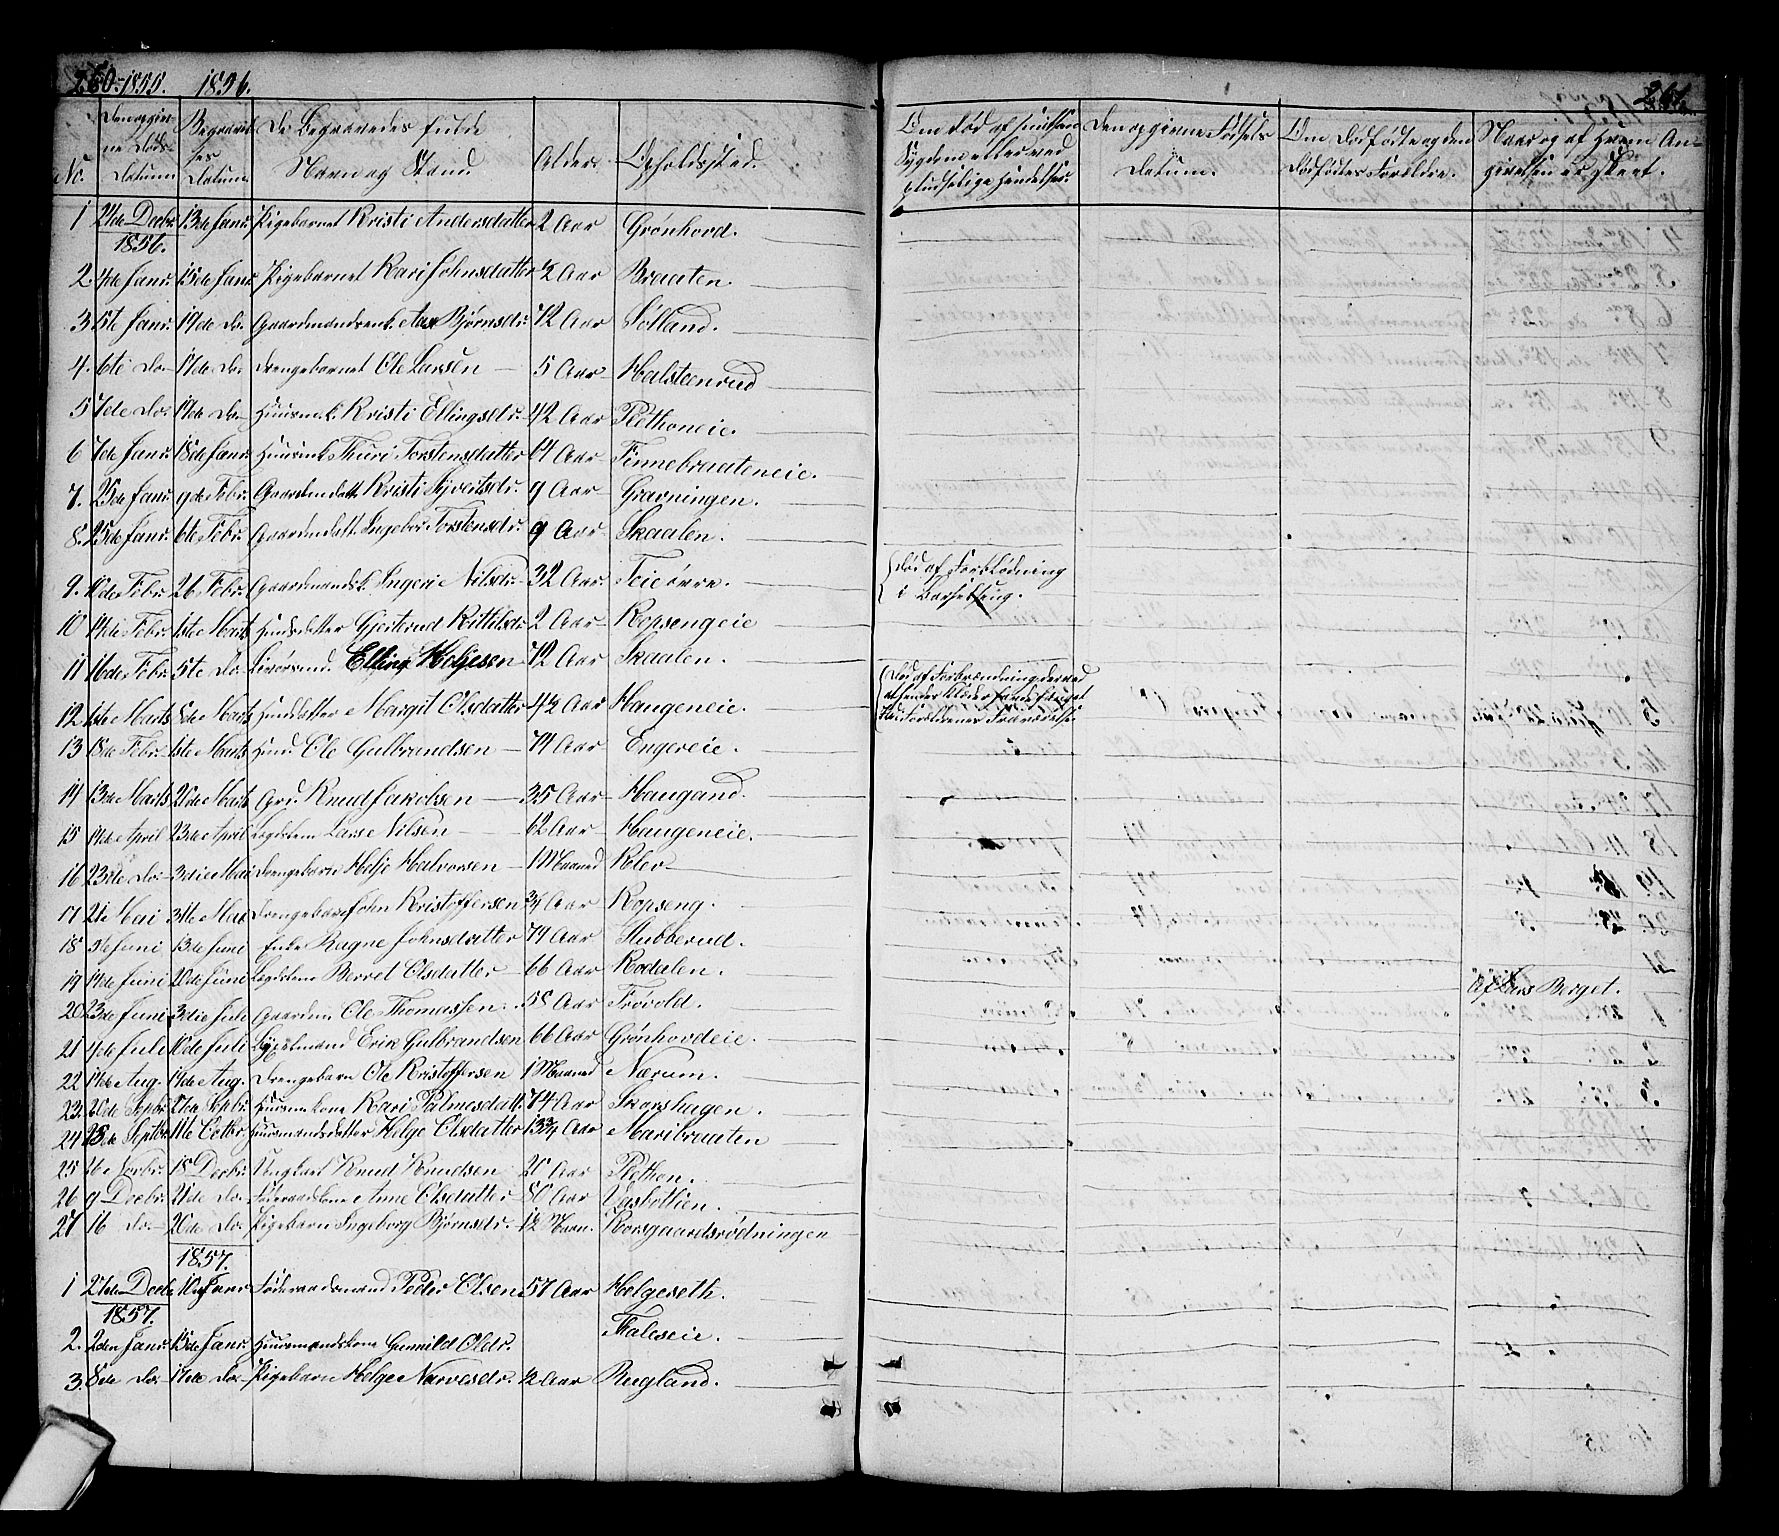 260. 1855. 1856.
No.
Den opgivne Døds Datum
Begravelses Datum
De Begravedes fulde Navn og Stand
Alder
Opholdssted.
1 21de Decbr. 13de Janr. Pigebarnet Kristi Andersdatter 2 Aar Grønhovd.
1856.
2. 4de Janr. 15de Janr. Pigebarnet Kari Johnsdatter ½ Aar Braaten.
3 15te Janr. 19de Do. Aase Bjørnsdr. 72 Aar Solland.
4. 6te Do. 17de Do. Drengebarnet Ole Larsen 5 Aar Halsteenrud
5 7de Do. 19de Do. Huusmk. Kristi Ellingsdtr. 42 Aar Plethoneie.
6 7de Janr. 18de Janr. Huusmk. Thuri Torstensdatter 64 Aar Finnebraateneie.
7. 25de Janr. 9de Febr. Gaardmdatt. Kristi Syvertsdr. 9 Aar Gravningen.
8. 25de Janr. 6te Febr. Gaardmdatt. Ingebor Torstensdr. 9 Aar Skaalen.
9. 12de Febr. 26 Febr. Gaardmandsk. Ingeri Nilsdr. 32 Aar Teie øvre.
10 14de Febr. 1ste Marts Huusdatter Gjertrud Kittilsdr. 2 Aar Kopsengeie
11 16de Febr. 5te Do. Livørsmd. Elling Holjesen 72 Aar Skaalen.
12. 1ste Marts 8de Marts Huusdatter Margit Olsdatter 4½ Aar Haugeneie.
13 18de Febr. 1ste Marts Huusmd. Ole Gulbrandsen 74 Aar Engereie.
14 13de Marts 26de Marts Grd. Knud Jakobsen 35 Aar Haugand.
15 14de April 23de April Lægdslem Lars Nilsen 62 Aar Haugeneie.
16 23de Do. 3die Mai Drengebarn Holje Halvorsen 1 Maaned Klev
17 21 Mai 31te Mai Drengebarn John Kristoffersen ¾ Aar Kopseng.
18 Juni 13de Juni Enke Ragne Johnsdatter 74 Aar Stubberud.
19 14de Juni 20de Juni Lægdslem Berret Olsdatter 66 Aar Rodalen.
20 23de Juni 3die Juli Gaardm. Ole Thomassen. 58 Aar Trøvold.
21 4de Juli 12de Juli Erik Gulbrandsen 66 Aar Grønhovdeie.
22 14de Aug. 19de Aug. Drengebarn Ole Kristoffersen 1 Maaned Nærum.
23. 20de Sepbr. 27de Sepbr. Huusmkone Kari Palmesdatt. 74 Aar Skarshugen.
24 28de Septbr. 11te Octbr. Huusmandsdatter Helge Olsdatter 13¾ Aar Maribraaten
25 26 Novbr. 18 Decbr. Ungkarl Knud Knudsen 20 Aar Plethon.
26 9 Decbr. 21de Do. Føderaadskone Anne Olsdatter 80 Aar Vasbottien.
27 16 Do. 20de Do. Pigebarn Ingeborg Bjørnsdr. 1½ Maan. Korsgaardsrødningen
1857.
1 27de Decbr. 10de Janr. Føderaadsmand Peder Olsen 57 Aar Helgeseth.
1857.
2. 2den Janr. 15de Janr. Huusmandskone Gunnild Olsdr. Thaleseie.
3. 8de Do. 17de Do. Pigebarn Helge Narvesdr. ½ Aar Rugland.
261.
Om død af smitsom Sygdom eller ved pludselige Hændelser.
Den opgivne Fødsels Datum.
Om Dødfødte og den Dødfødtes Forældre.
Naar og af hvem Angivelsen er skeet.
Død af Forblødning
i Barselseng.
Død af Forbrændning derved
at hendes Klæder fandt fænget
Forældrenes Fraværelse.
Af Lars Berget.